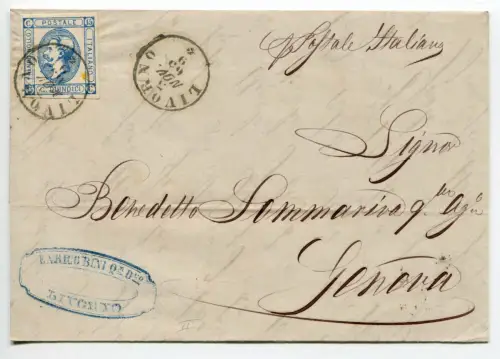 C. 15
POSTALE
ITALIANO
QUINDICI
LIVORNO
LIVORNO
NOV
63
p. Postale Italiano
Signor
Benedetto Sommariva q.m Ag.o
Genova
LIVORNO